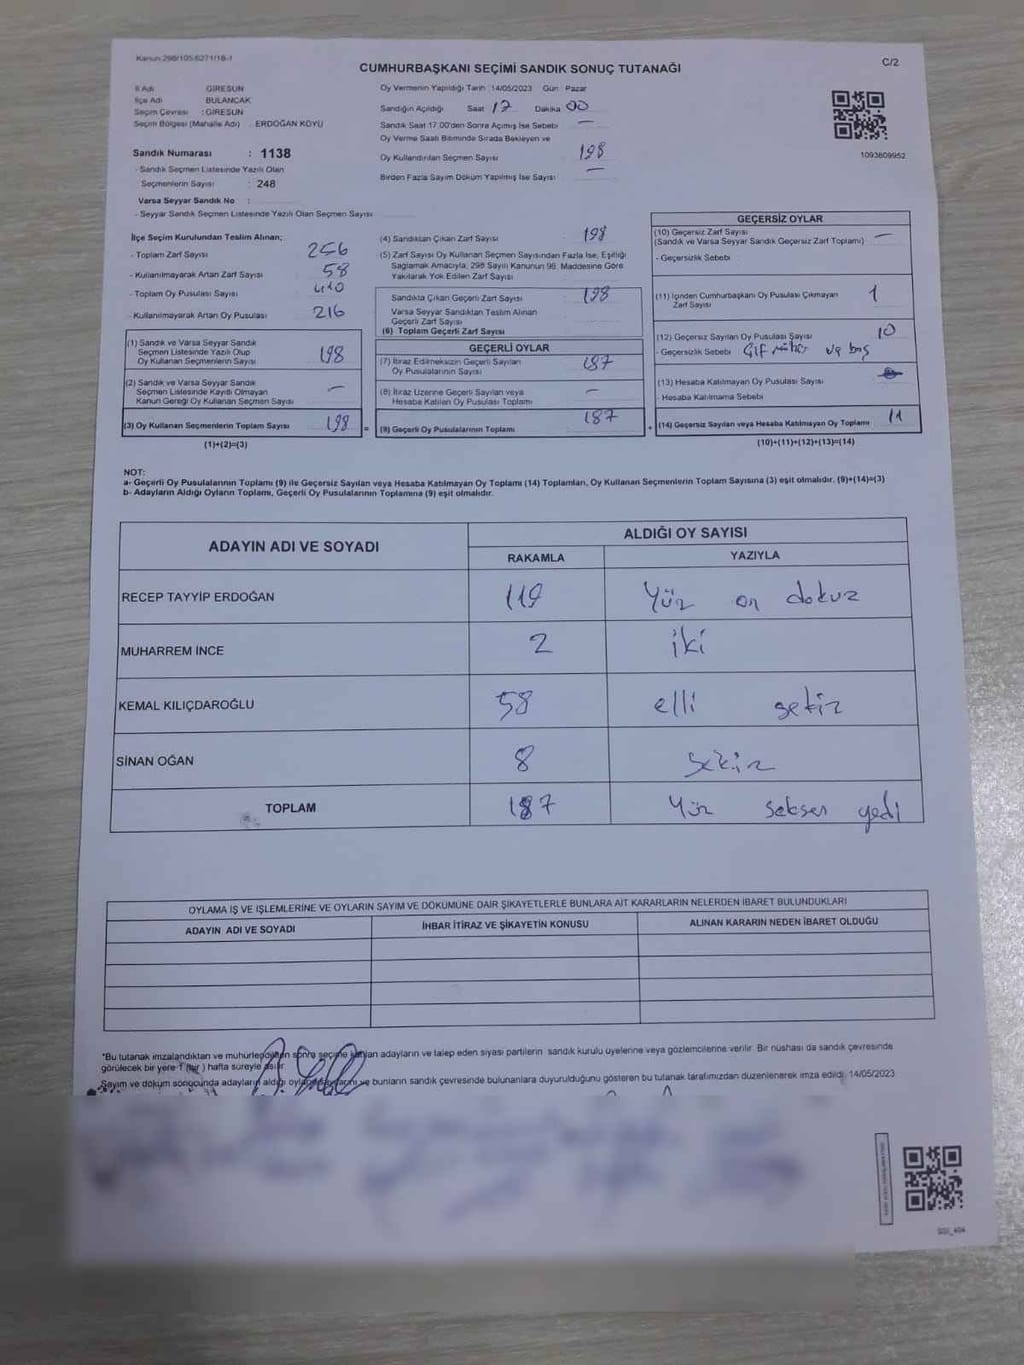 Kanun:298/105.6271/18-1
CUMHURBAŞKANI SEÇİMİ SANDIK SONUÇ TUTANAĞI
C/2
İl Adı GİRESUN
İlçe Adı BULANCAK
Seçim Çevresi : GİRESUN
Seçim Bölgesi (Mahalle Adı) : ERDOĞAN KÖYÜ
Sandık Numarası : 1138
- Sandık Seçmen Listesinde Yazılı Olan
Seçmenlerin Sayısı : 248
Varsa Seyyar Sandık No :
- Seyyar Sandık Seçmen Listesinde Yazılı Olan Seçmen Sayısı
Oy Vermenin Yapıldığı Tarih 14/05/2023 Gün Pazar
Sandığın Açıldığı Saat 17 Dakika 00
Sandık Saat 17.00'den Sonra Açımış İse Sebebi —
Oy Verme Saati Bitiminde Sırada Bekleyen ve
Oy Kullandırılan Seçmen Sayısı 198
Birden Fazla Sayım Döküm Yapılmış İse Sayısı —
1093809952
İlçe Seçim Kurulundan Teslim Alınan;
- Toplam Zarf Sayısı 256
- Kullanılmayarak Artan Zarf Sayısı 58
- Toplam Oy Pusulası Sayısı 410
- Kullanılmayarak Artan Oy Pusulası 216
(1) Sandık ve Varsa Seyyar Sandık
Seçmen Listesinde Yazılı Olup
Oy Kullanan Seçmenlerin Sayısı 198
(2) Sandık ve Varsa Seyyar Sandık
Seçmen Listesinde Kayıtlı Olmayan
Kanun Gereği Oy Kullanan Seçmen Sayısı —
(3) Oy Kullanan Seçmenlerin Toplam Sayısı 198
(1)+(2)=(3)
(4) Sandıktan Çıkan Zarf Sayısı 198
(5) Zarf Sayısı Oy Kullanan Seçmen Sayısından Fazla İse, Eşitliği
Sağlamak Amacıyla, 298 Sayılı Kanunun 98. Maddesine Göre
Yakılarak Yok Edilen Zarf Sayısı
Sandıkta Çıkan Geçerli Zarf Sayısı 198
Varsa Seyyar Sandıktan Teslim Alınan
Geçerli Zarf Sayısı
(6) Toplam Geçerli Zarf Sayısı
=
GEÇERLİ OYLAR
(7) İtiraz Edilmeksizin Geçerli Sayılan
Oy Pusulalarının Sayısı 187
(8) İtiraz Üzerine Geçerli Sayılan veya
Hesaba Katılan Oy Pusulası Toplamı —
(9) Geçerli Oy Pusulalarının Toplamı 187
+
GEÇERSİZ OYLAR
(10) Geçersiz Zarf Sayısı —
(Sandık ve Varsa Seyyar Sandık Geçersiz Zarf Toplamı)
- Geçersizlik Sebebi
(11) İçinden Cumhurbaşkanı Oy Pusulası Çıkmayan 1
Zarf Sayısı
(12) Geçersiz Sayılan Oy Pusulası Sayısı 10
- Geçersizlik Sebebi Çif mühür ve boş
(13) Hesaba Katılmayan Oy Pusulası Sayısı
- Hesaba Katılmama Sebebi
(14) Geçersiz Sayılan veya Hesaba Katılmayan Oy Toplamı 11
(10)+(11)+(12)+(13)=(14)
NOT:
a- Geçerli Oy Pusulalarının Toplamı (9) ile Geçersiz Sayılan veya Hesaba Katılmayan Oy Toplamı (14) Toplamları, Oy Kullanan Seçmenlerin Toplam Sayısına (3) eşit olmalıdır. (9)+(14)=(3)
b- Adayların Aldığı Oyların Toplamı, Geçerli Oy Pusulalarının Toplamına (9) eşit olmalıdır.
ADAYIN ADI VE SOYADI
ALDIĞI OY SAYISI
RAKAMLA YAZIYLA
RECEP TAYYİP ERDOĞAN 119 Yüz on dokuz
MUHARREM İNCE 2 iki
KEMAL KILIÇDAROĞLU 58 elli sekiz
SİNAN OĞAN 8 sekiz
TOPLAM 187 Yüz seksen yedi
OYLAMA İŞ VE İŞLEMLERİNE VE OYLARIN SAYIM VE DÖKÜMÜNE DAİR ŞİKAYETLERLE BUNLARA AİT KARARLARIN NELERDEN İBARET BULUNDUKLARI
ADAYIN ADI VE SOYADI İHBAR İTİRAZ VE ŞİKAYETİN KONUSU ALINAN KARARIN NEDEN İBARET OLDUĞU
*Bu tutanak imzalandıktan ve mühürlendikten sonra seçime katılan adayların ve talep eden siyasi partilerin sandık kurulu üyelerine veya gözlemcilerine verilir. Bir nüshası da sandık çevresinde
görülecek bir yere 1 (bir) hafta süreyle asılır.
Sayım ve döküm sonucunda adayların aldığı oyların sayısını ve bunların sandık çevresinde bulunanlara duyurulduğunu gösteren bu tutanak tarafımızdan düzenlenerek imza edildi. 14/05/2023